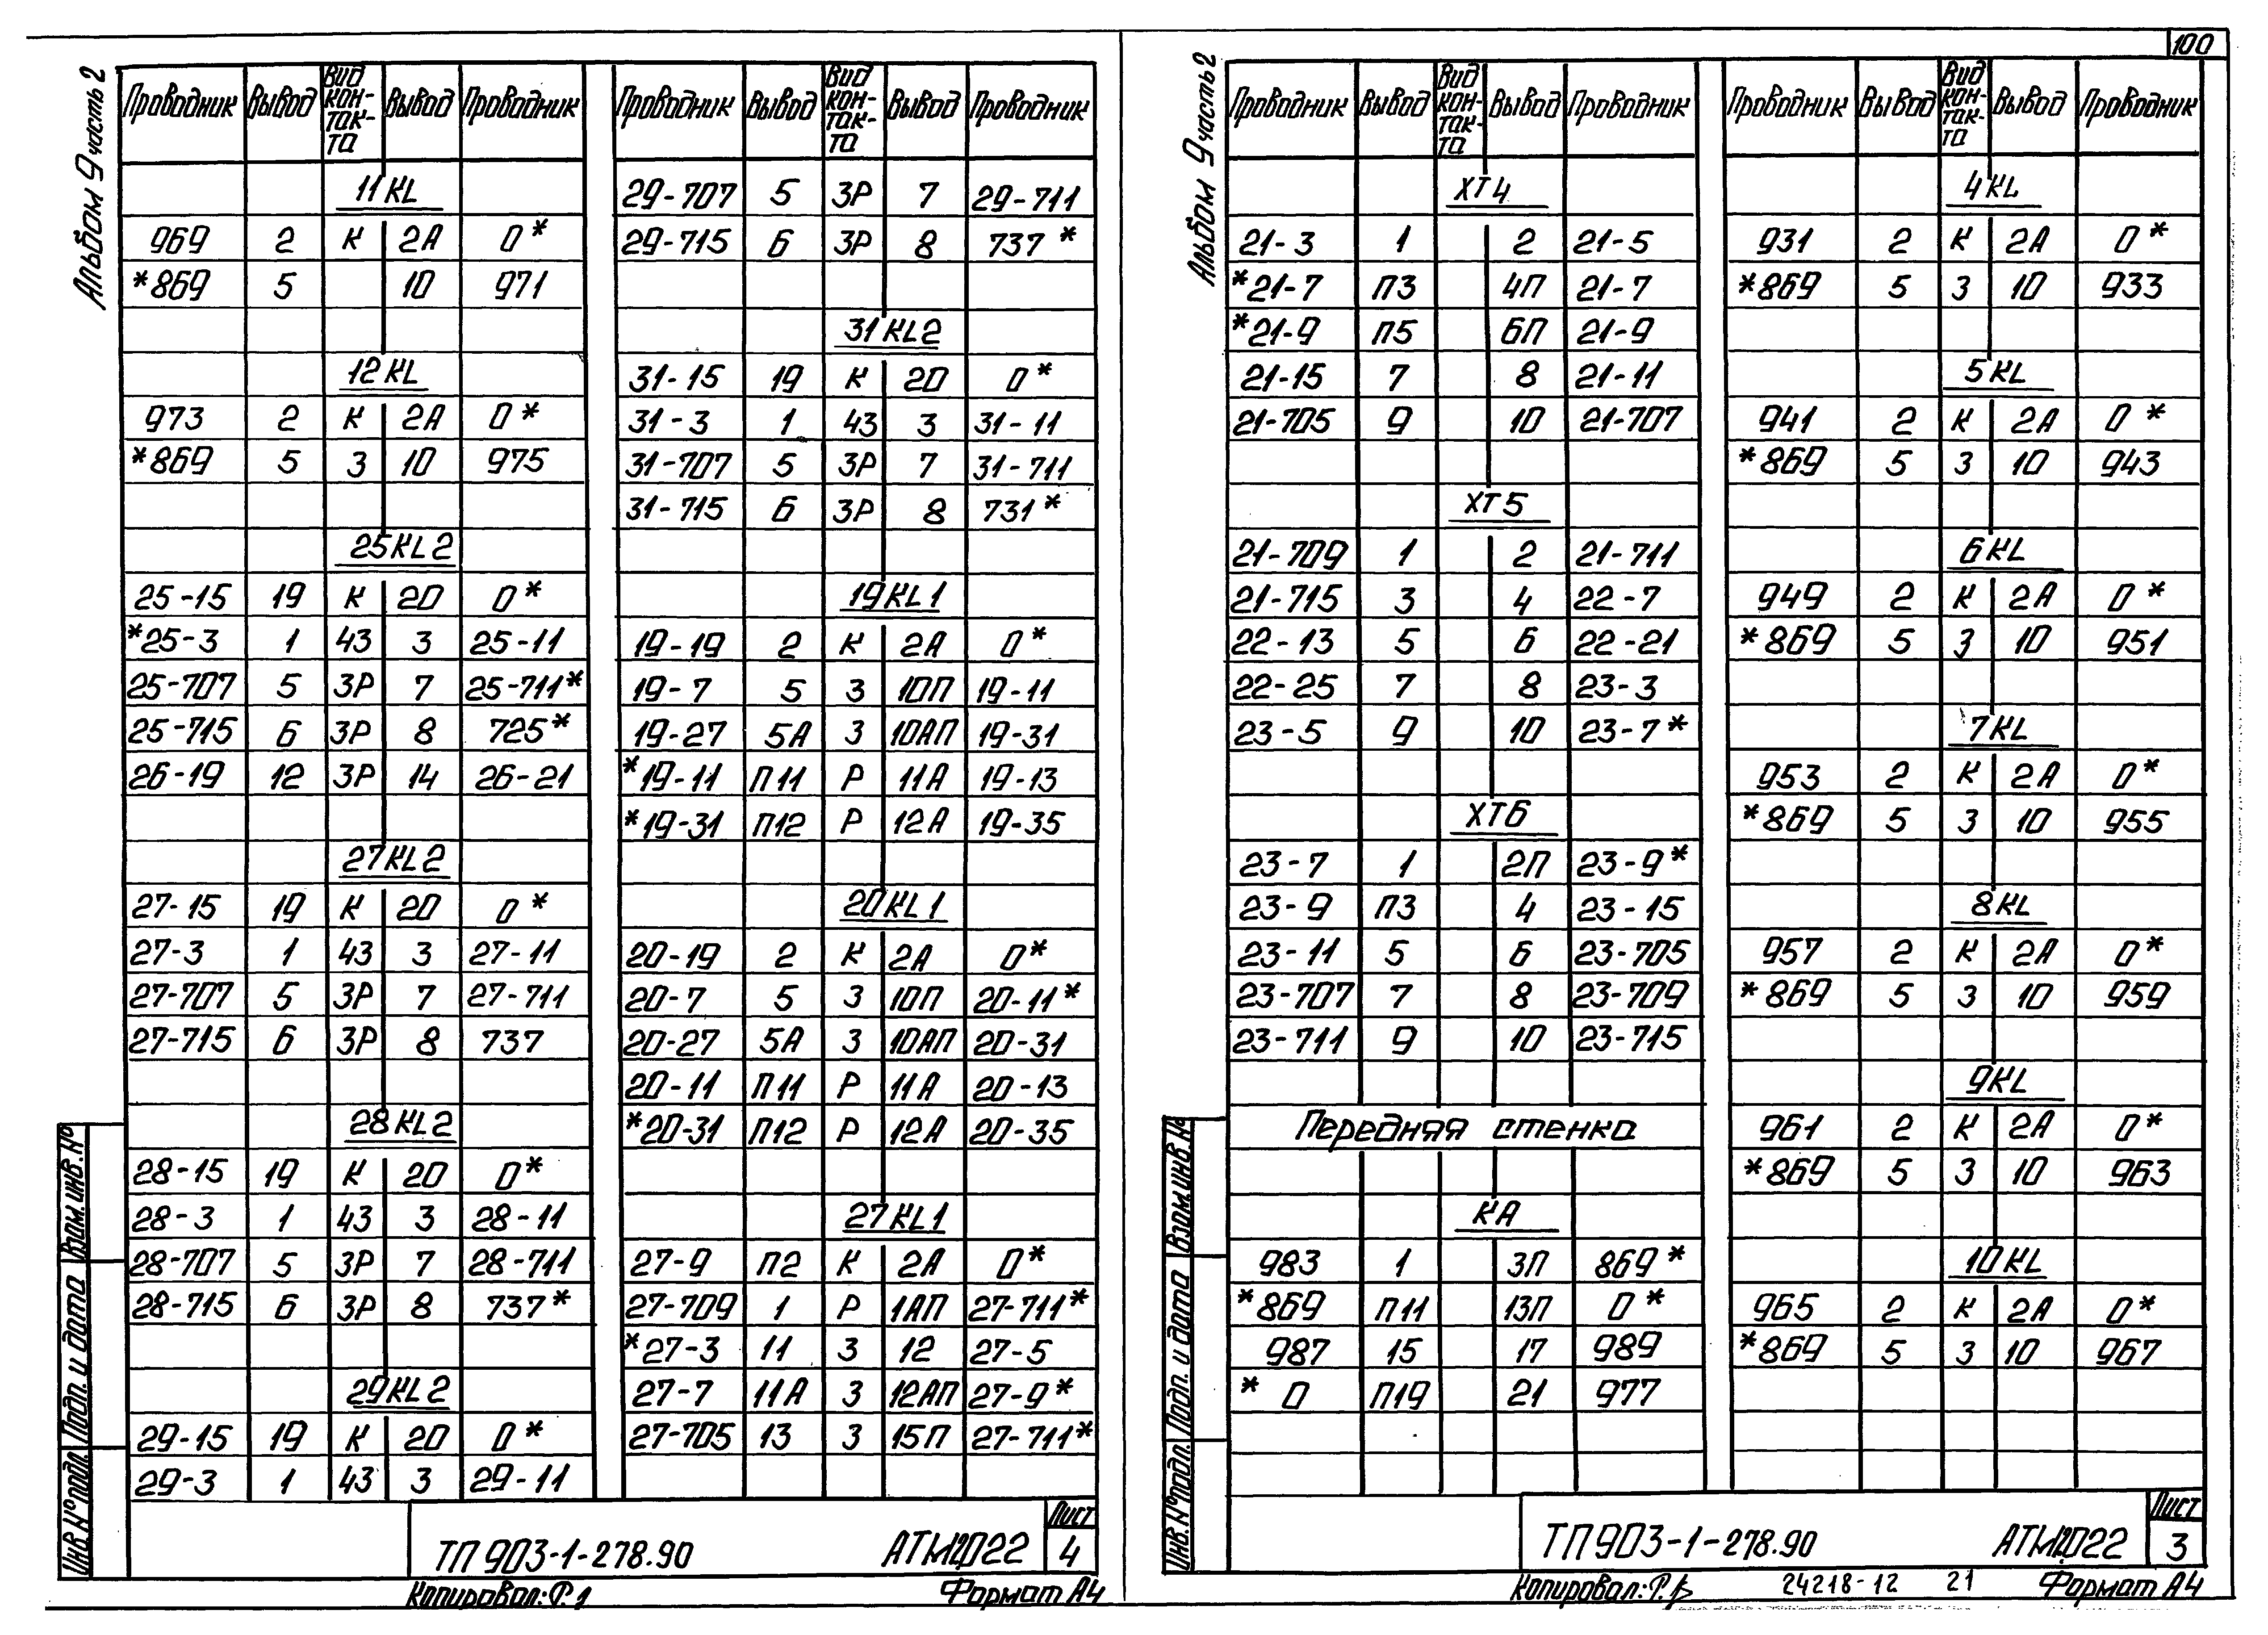 100
Альбом 9 часть 2
Проводник Вывод Вид кон-так-та Вывод Проводник
11KL
969 2 К 2А 0*
*869 5 10 971
12KL
973 2 К 2А 0*
*869 5 З 10 975
25KL2
25-15 19 К 20 0*
*25-3 1 43 3 25-11
25-707 5 ЗР 7 25-711*
25-715 6 ЗР 8 725*
26-19 12 ЗР 14 26-21
27KL2
27-15 19 К 20 0*
27-3 1 43 3 27-11
27-707 5 ЗР 7 27-711
27-715 6 ЗР 8 737
28KL2
28-15 19 К 20 0*
28-3 1 43 3 28-11
28-707 5 ЗР 7 28-711
28-715 6 ЗР 8 737*
29KL2
29-15 19 К 20 0*
29-3 1 43 3 29-11
Проводник Вывод Вид кон-так-та Вывод Проводник
29-707 5 ЗР 7 29-711
29-715 6 ЗР 8 737*
31KL2
31-15 19 К 20 0*
31-3 1 43 3 31-11
31-707 5 ЗР 7 31-711
31-715 6 ЗР 8 731*
19KL1
19-19 2 К 2А 0*
19-7 5 З 10П 19-11
19-27 5А З 10АП 19-31
*19-11 П11 Р 11А 19-13
*19-31 П12 Р 12А 19-35
20KL1
20-19 2 К 2А 0*
20-7 5 З 10П 20-11*
20-27 5А З 10АП 20-31
20-11 П11 Р 11А 20-13
*20-31 П12 Р 12А 20-35
27KL1
27-9 П2 К 2А 0*
27-709 1 Р 1АП 27-711*
*27-3 11 З 12 27-5
27-7 11А З 12АП 27-9*
27-705 13 З 15П 27-711*
Взам.инв.№
Подп. и дата
Инв.№подл.
ТП 903-1-278.90 АТМ2022 Лист 4
Копировал: Формат А4
Альбом 9 часть 2
Проводник Вывод Вид кон-так-та Вывод Проводник
ХТ4
21-3 1 2 21-5
*21-7 П3 4П 21-7
*21-9 П5 6П 21-9
21-15 7 8 21-11
21-705 9 10 21-707
ХТ5
21-709 1 2 21-711
21-715 3 4 22-7
22-13 5 6 22-21
22-25 7 8 23-3
23-5 9 10 23-7*
ХТ6
23-7 1 2П 23-9*
23-9 П3 4 23-15
23-11 5 6 23-705
23-707 7 8 23-709
23-711 9 10 23-715
Передняя стенка
КА
983 1 3П 869*
*869 П11 13П 0*
987 15 17 989
*0 П19 21 977
Проводник Вывод Вид кон-так-та Вывод Проводник
4KL
931 2 К 2А 0*
*869 5 З 10 933
5KL
941 2 К 2А 0*
*869 5 З 10 943
6KL
949 2 К 2А 0*
*869 5 З 10 951
7KL
953 2 К 2А 0*
*869 5 З 10 955
8KL
957 2 К 2А 0*
*869 5 З 10 959
9KL
961 2 К 2А 0*
*869 5 З 10 963
10KL
965 2 К 2А 0*
*869 5 З 10 967
Взам.инв.№
Подп. и дата
Инв.№подл.
ТП 903-1-278.90 АТМ2022 Лист 3
Копировал: 24218-12 21 Формат А4